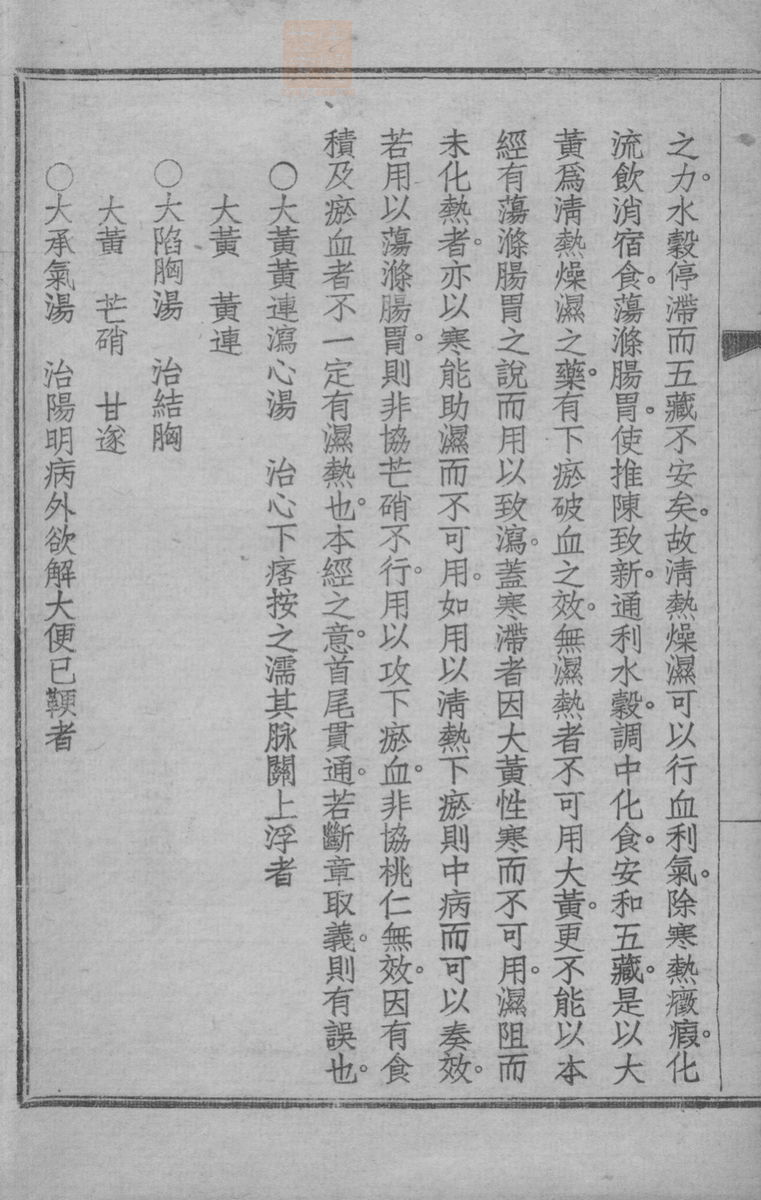 之力。水穀停滯而五藏不安矣。故淸熱燥濕可以行血利氣。除寒熱癥瘕。化
流飮消宿食。蕩滌腸胃。使推陳致新。通利水穀。調中化食。安和五藏。是以大
黃爲淸熱燥濕之藥。有下瘀破血之效。無濕熱者不可用大黃。更不能以本
經有蕩滌腸胃之說而用以致瀉。蓋寒滯者因大黃性寒而不可用。濕阻而
未化熱者。亦以寒能助濕而不可用。如用以淸熱下瘀則中病而可以奏效。
若用以蕩滌腸胃。則非協芒硝不行。用以攻下瘀血。非協桃仁無效。因有食
積及瘀血者不一定有濕熱也。本經之意。首尾貫通。若斷章取義。則有誤也。
○大黃黃連瀉心湯　治心下痞按之濡其脉關上浮者
大黃　黃連
○大陷胸湯　治結胸
大黃　芒硝　甘遂
○大承氣湯　治陽明病外欲解大便已鞕者